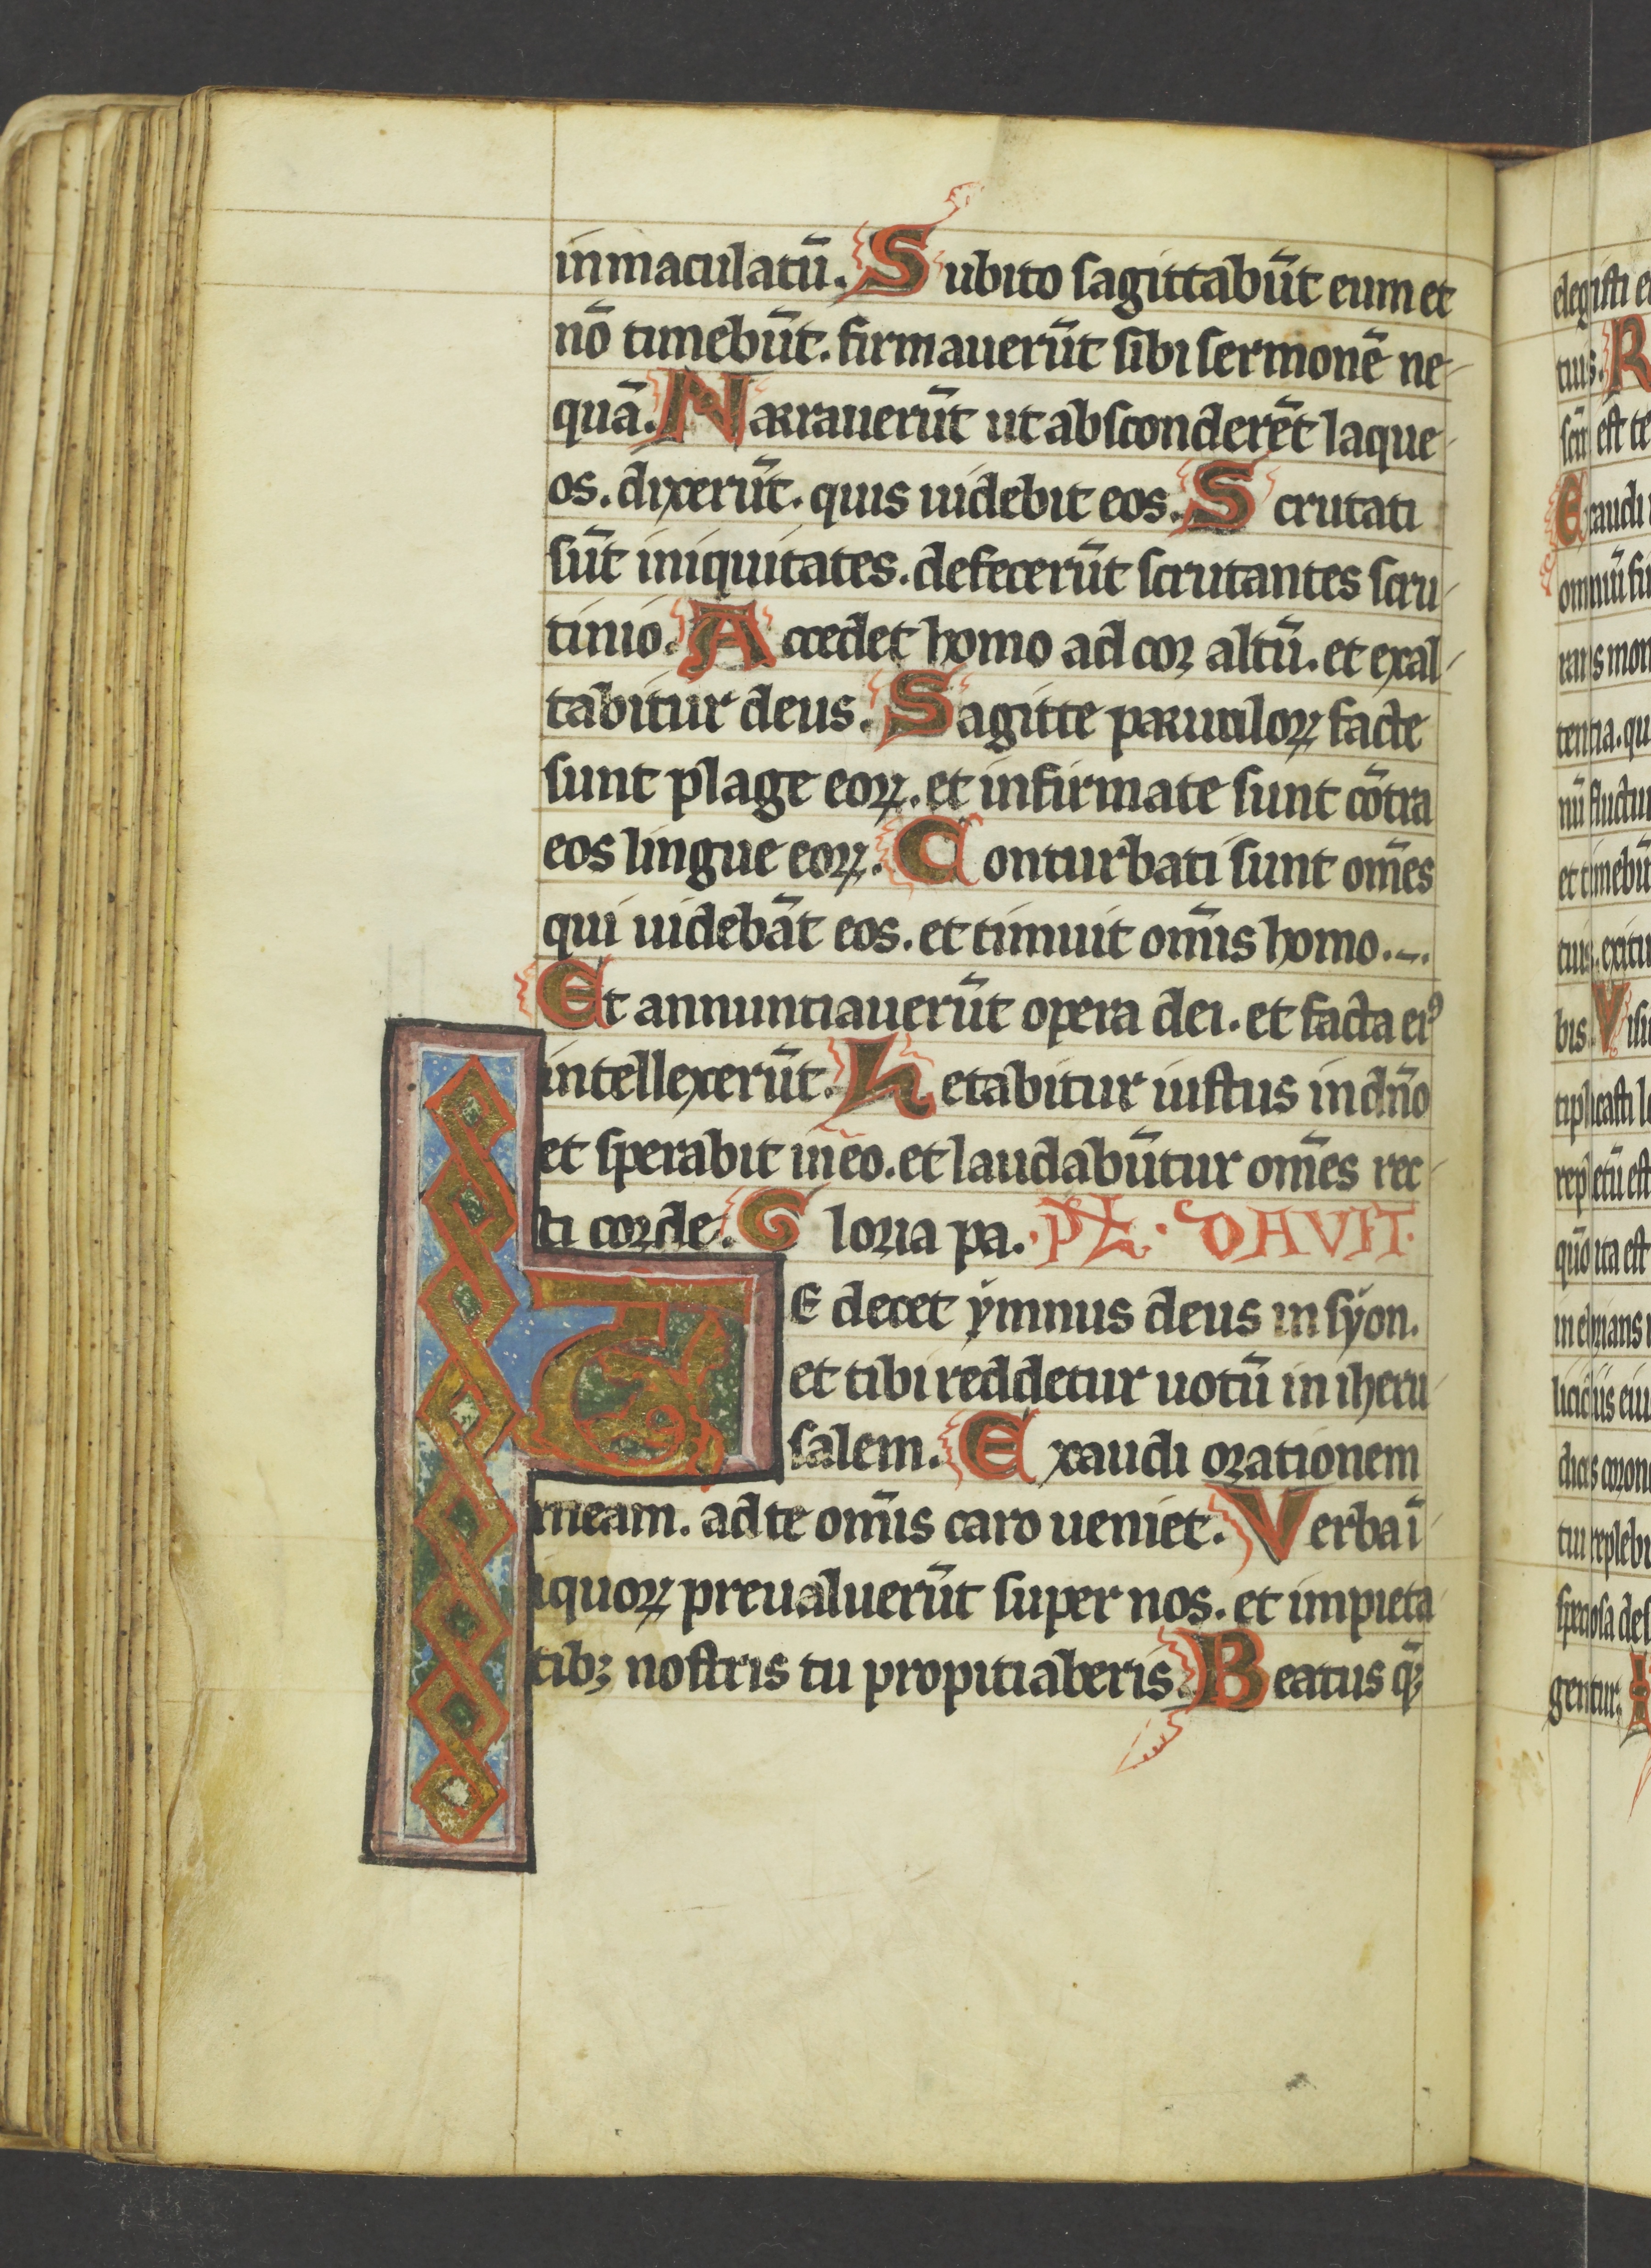 inmaculatū. Subito sagittabūt eum et
nō timebūt. firmauerūt sibi sermonē ne
quā. Narrauerūt ut absconderēt laque
os. dixerūt. quis uidebit eos. Scrutati
sūt iniquitates. defecerūt scrutantes scru
tinio. Accedet homo ad cor altū. et exal
tabitur deus. Sagitte paruuloꝝ facte
sunt plage eoꝝ. et infirmate sunt cōtra
eos lingue eoꝝ. Conturbati sunt om̄es
qui uidebāt eos. et timuit om̄is homo.
Et annuntiauerūt opera dei. et facta eiꝰ
intellexerūt. Letabitur iustus in dn̄o
et sperabit in eo. et laudabūtur om̄es rec
ti corde. Gloria pa. PS. DAVIT.
TE decet ẏmnus deus in sẏon.
et tibi reddetur uotū in iheru
salem. Exaudi orationem
meam. ad te om̄is caro ueniet. Verba ī
iquoꝝ preualuerūt super nos. et impieta
tibꝫ nostris tu propitiaberis. Beatus q̄
elegisti
tuis. R
scm̄ est te
Exaudi
omniū fi
rans mon
tentia. qu
nū fluctuu
et timebūt
tuis. exitu
bis. Visi
tiplicasti lo
repletū est
quō ita est
tui replebū
speciosa des
gentur.